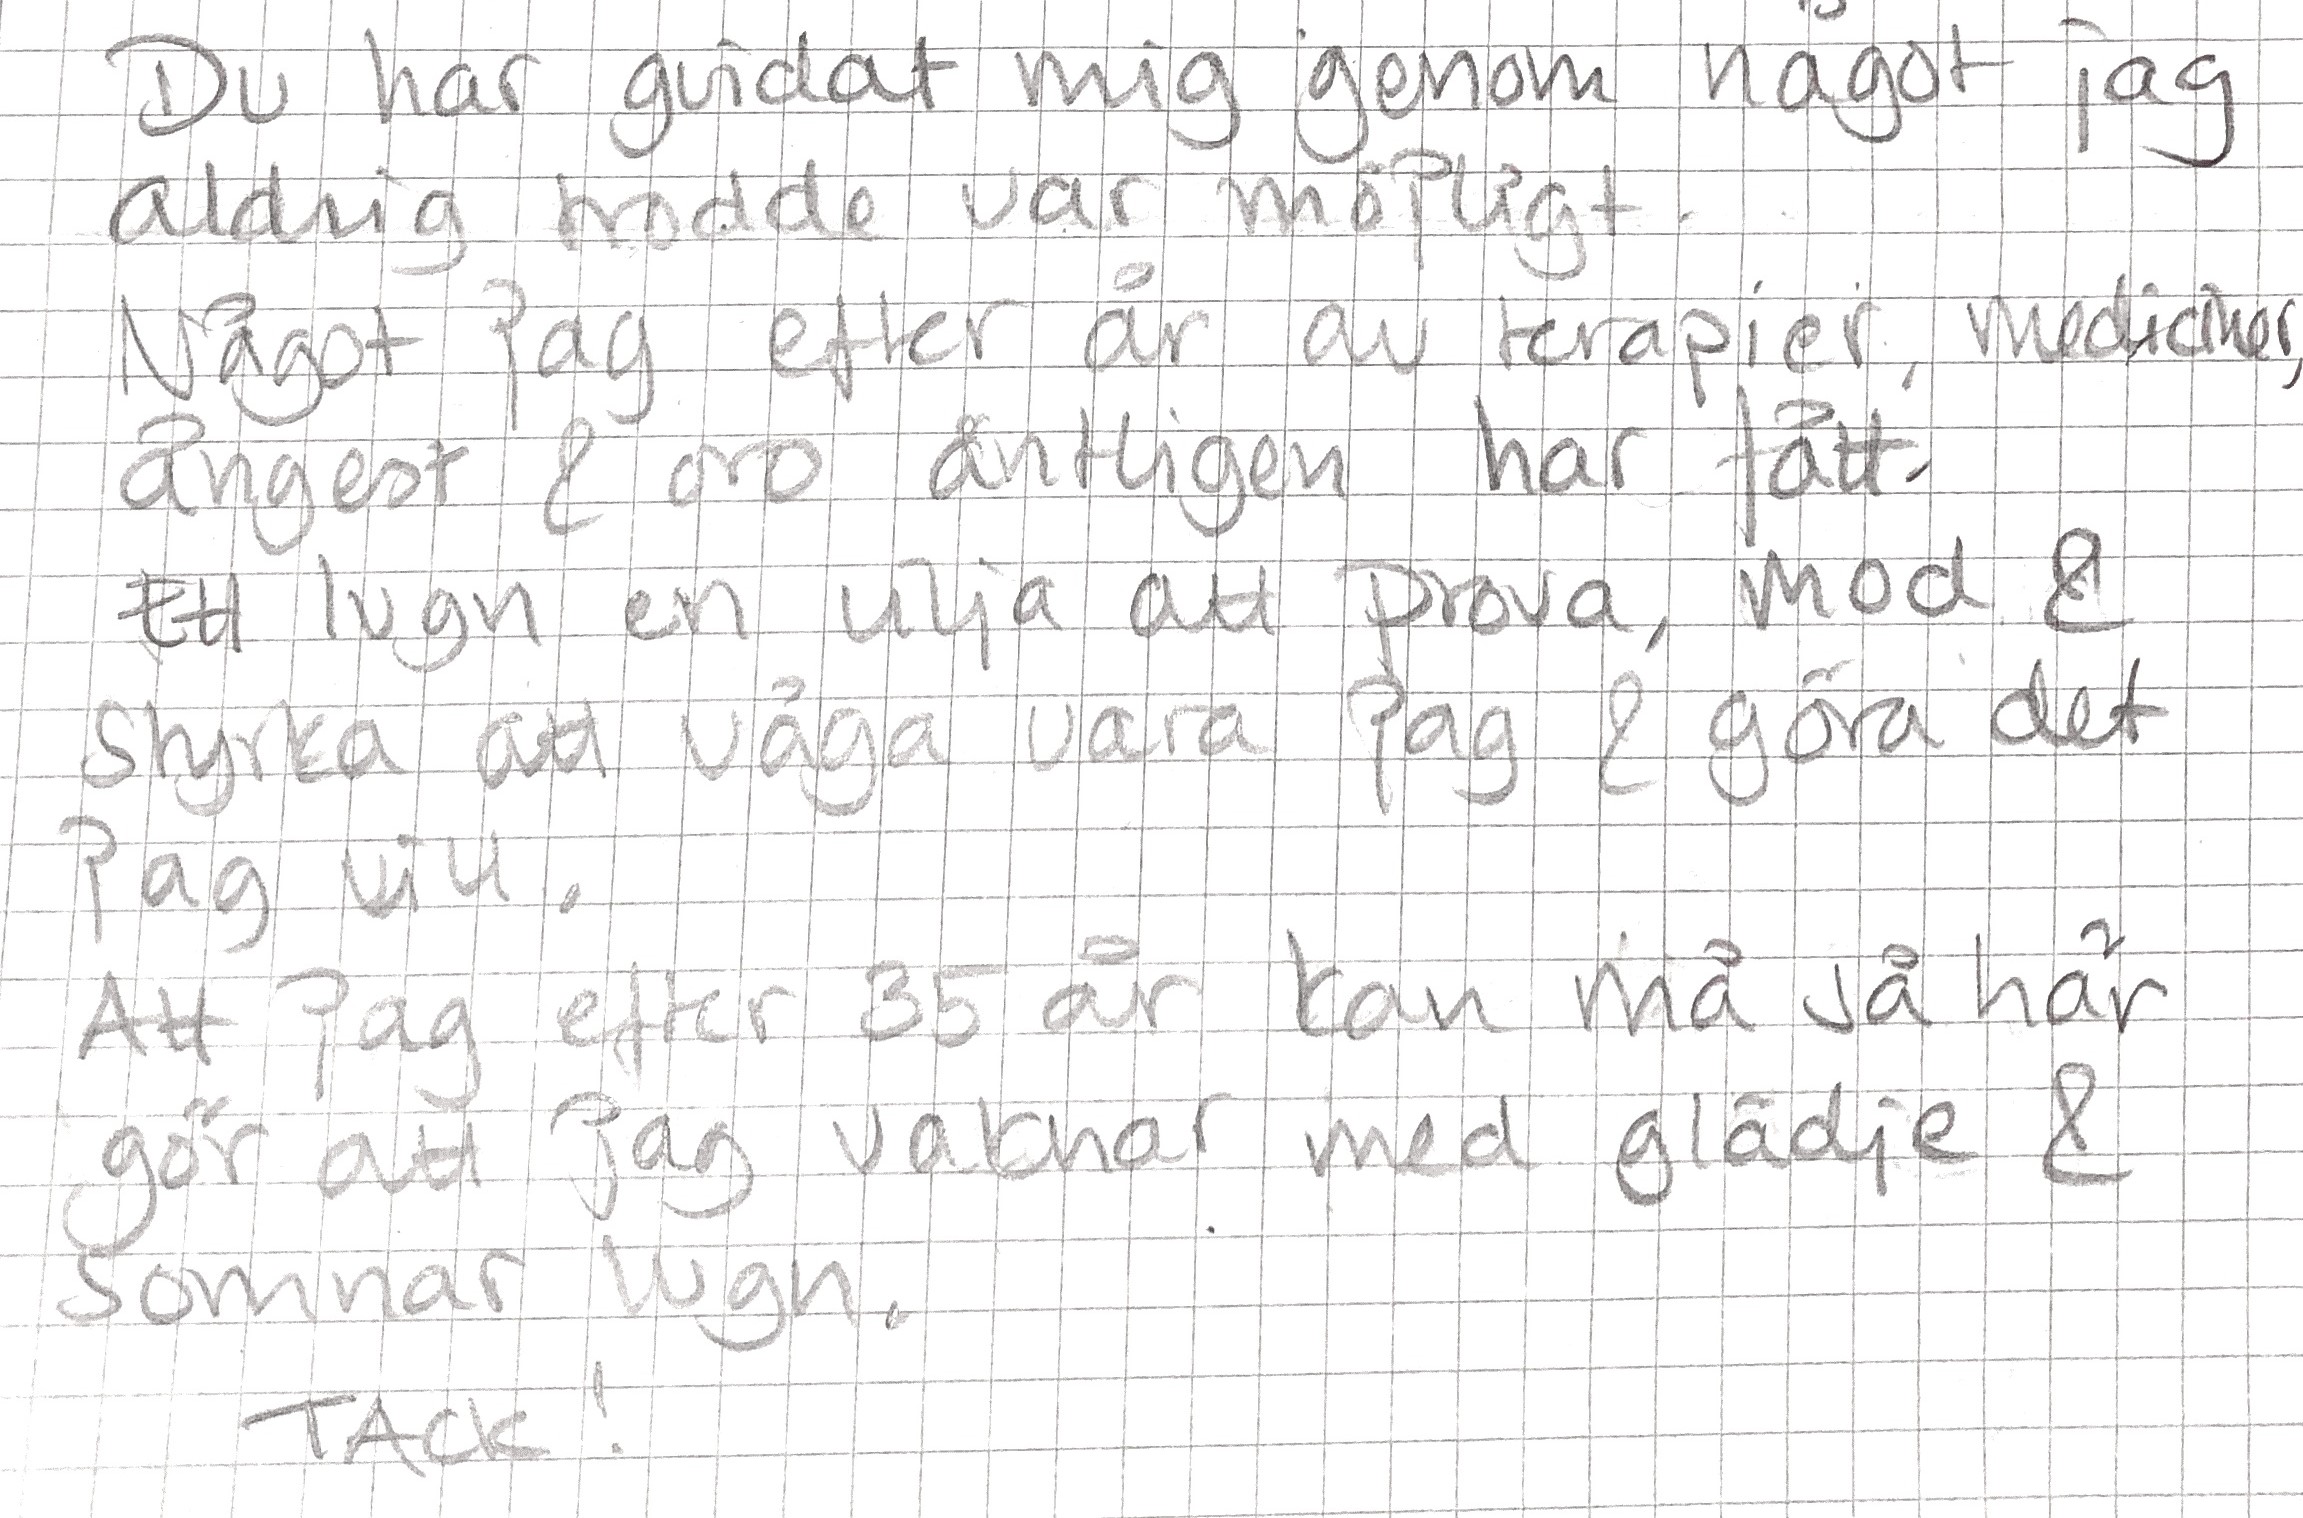 Du har guidat mig genom något jag
aldrig trodde var möjligt.
Något jag efter år av terapier, mediciner,
ångest & oro äntligen har fått.
Ett lugn en vilja att prova, mod &
styrka att våga vara jag & göra det
jag vill.
Att jag efter 35 år kan må så här
gör att jag vaknar med glädje &
somnar lugn.
TAck!